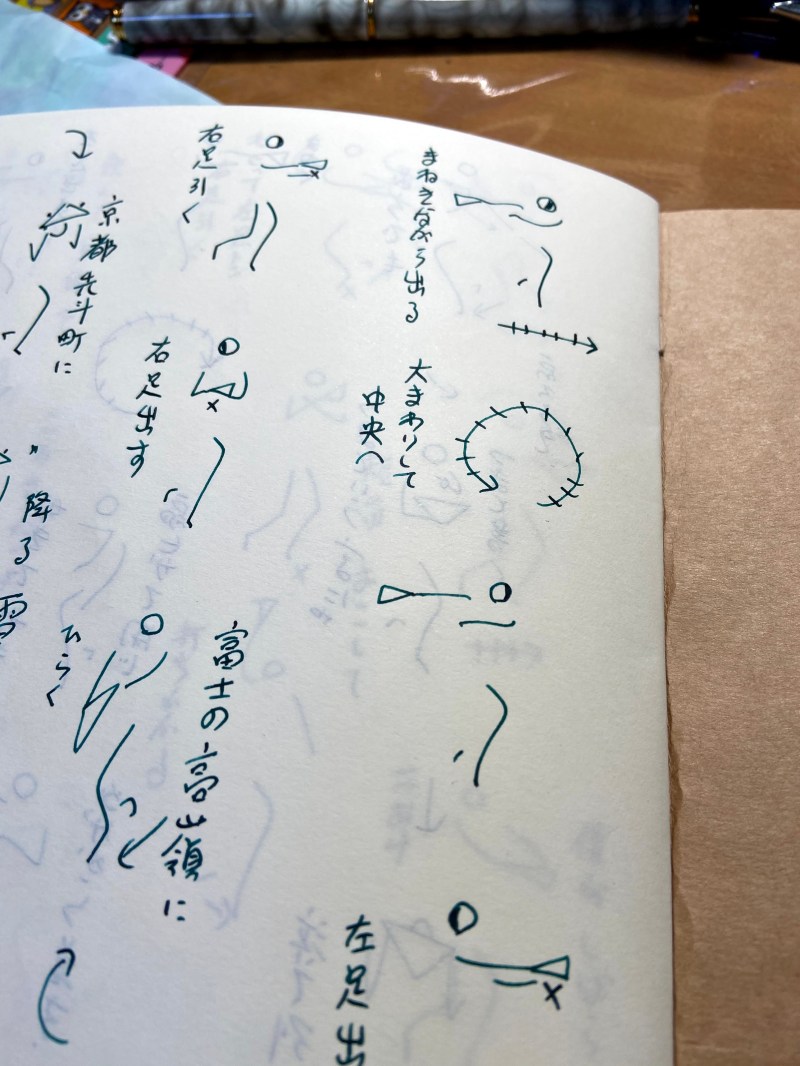 まねきながら出る
大まわりして
中央へ
左足出
右足引く
右足出す
富士の高山領に
ひらく
京都先斗町に
降る雪